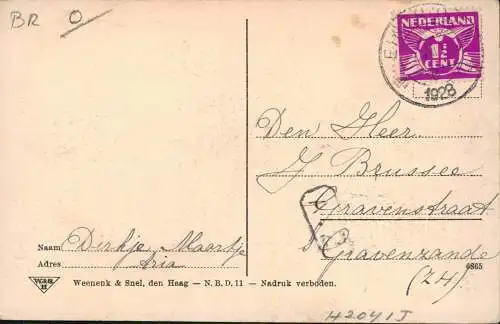 BR O
NEDERLAND
1½
CENT
1928
Den Heer
J Brussee
Gravenstraat
's Gravenzande
(ZH)
Naam Dirkje Maartje
Adres Aria
6865
Weenenk & Snel, den Haag — N. B. D. 11 — Nadruk verboden.
4204 1 J